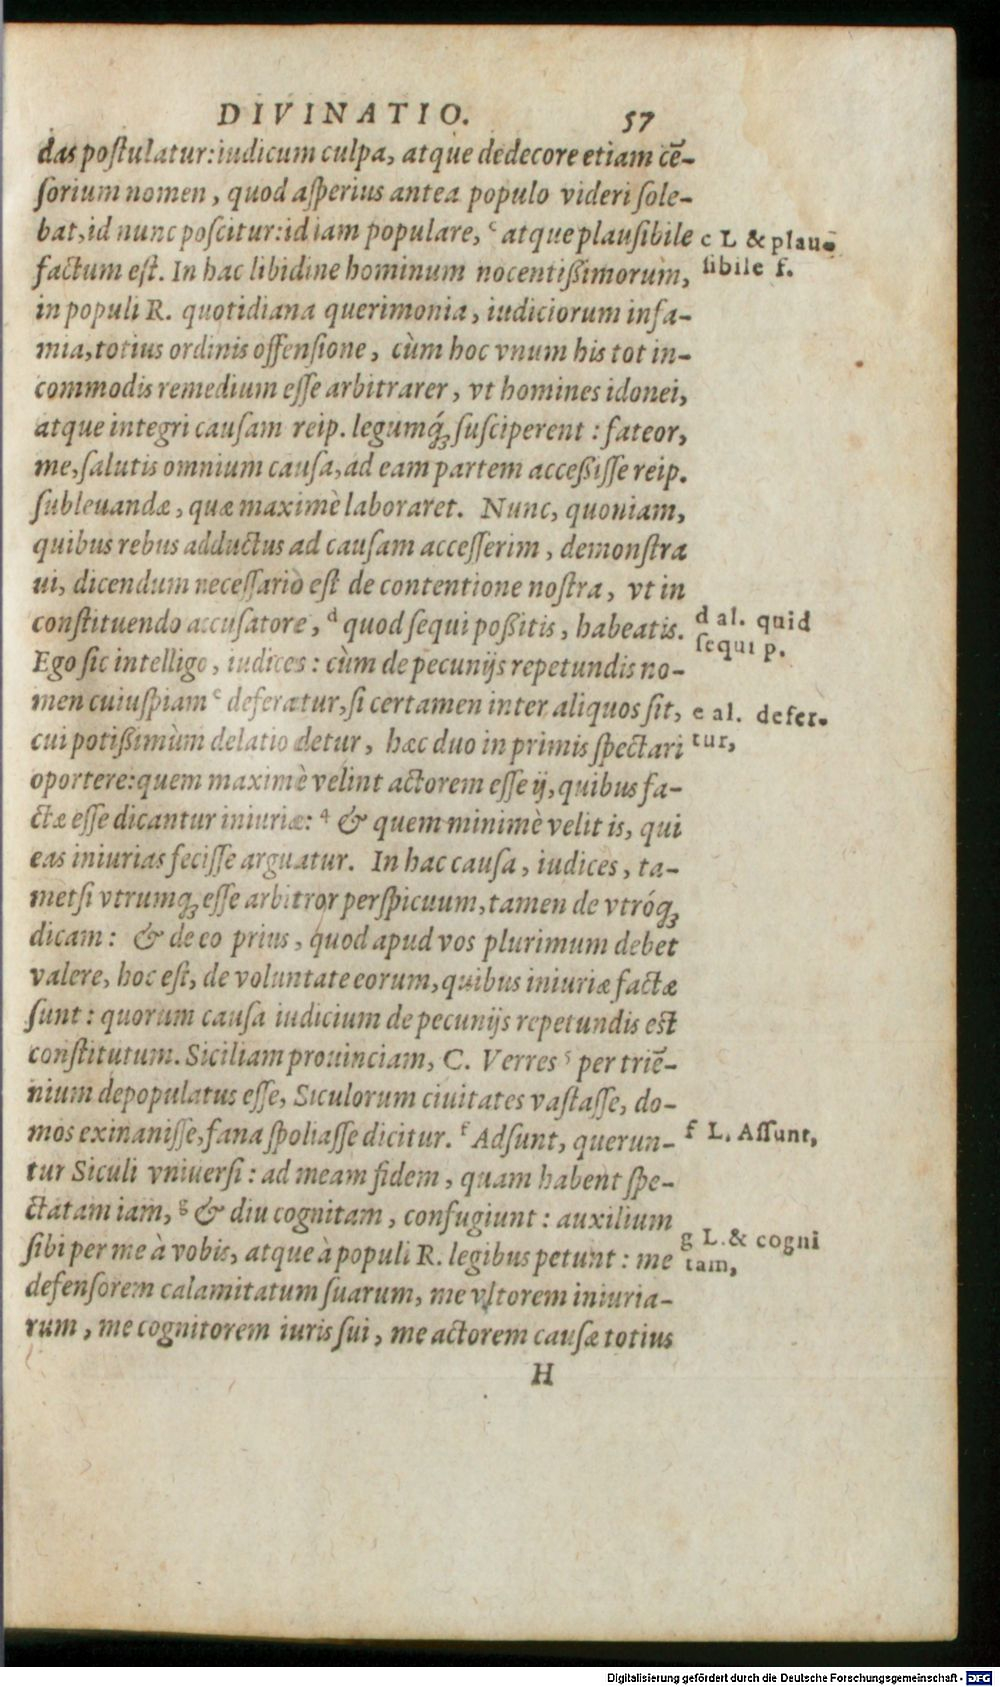 DIVINATIO. 57
das poſtulatur: iudicum culpa, atque dedecore etiam cē-
ſorium nomen, quod aſperius antea populo videri ſole-
bat, id nunc poſcitur: id iam populare, ᶜ atque plauſibile
c L & plau-
ſibile f.
factum eſt. In hac libidine hominum nocentißimorum,
in populi R. quotidiana querimonia, iudiciorum infa-
mia, totius ordinis offenſione, cùm hoc vnum his tot in-
commodis remedium eſſe arbitrarer, vt homines idonei,
atque integri cauſam reip. legumq́ꝫ ſuſciperent: fateor,
me, ſalutis omnium cauſa, ad eam partem acceßiſſe reip.
ſubleuandæ, quæ maximè laboraret. Nunc, quoniam,
quibus rebus adductus ad cauſam acceſſerim, demonſtra
ui, dicendum neceſſariò eſt de contentione noſtra, vt in
conſtituendo accuſatore, ᵈ quod ſequi poßitis, habeatis.
d al. quid
ſequi p.
Ego ſic intelligo, iudices: cùm de pecunijs repetundis no-
men cuiuſpiam ᵉ deferatur, ſi certamen inter aliquos ſit,
e al. defer-
tur,
cui potißimùm delatio detur, hæc duo in primis ſpectari
oportere: quem maximè velint actorem eſſe ij, quibus fa-
ctæ eſſe dicantur iniuriæ: ⁴ & quem minimè velit is, qui
eas iniurias feciſſe arguatur. In hac cauſa, iudices, ta-
metſi vtrumqꝫ eſſe arbitror perſpicuum, tamen de vtróqꝫ
dicam: & de eo prius, quod apud vos plurimum debet
valere, hoc eſt, de voluntate eorum, quibus iniuriæ factæ
ſunt: quorum cauſa iudicium de pecunijs repetundis eſt
conſtitutum. Siciliam prouinciam, C. Verres ⁵ per triē-
nium depopulatus eſſe, Siculorum ciuitates vaſtaſſe, do-
mos exinaniſſe, fana ſpoliaſſe dicitur. ᶠ Adſunt, querun-
f L. Aſſunt,
tur Siculi vniuerſi: ad meam fidem, quam habent ſpe-
ctatam iam, ᵍ & diu cognitam, confugiunt: auxilium
g L. & cogni
tam,
ſibi per me à vobis, atque à populi R. legibus petunt: me
defenſorem calamitatum ſuarum, me vltorem iniuria-
rum, me cognitorem iuris ſui, me actorem cauſæ totius
H
Digitalisierung gefördert durch die Deutsche Forschungsgemeinschaft - DFG